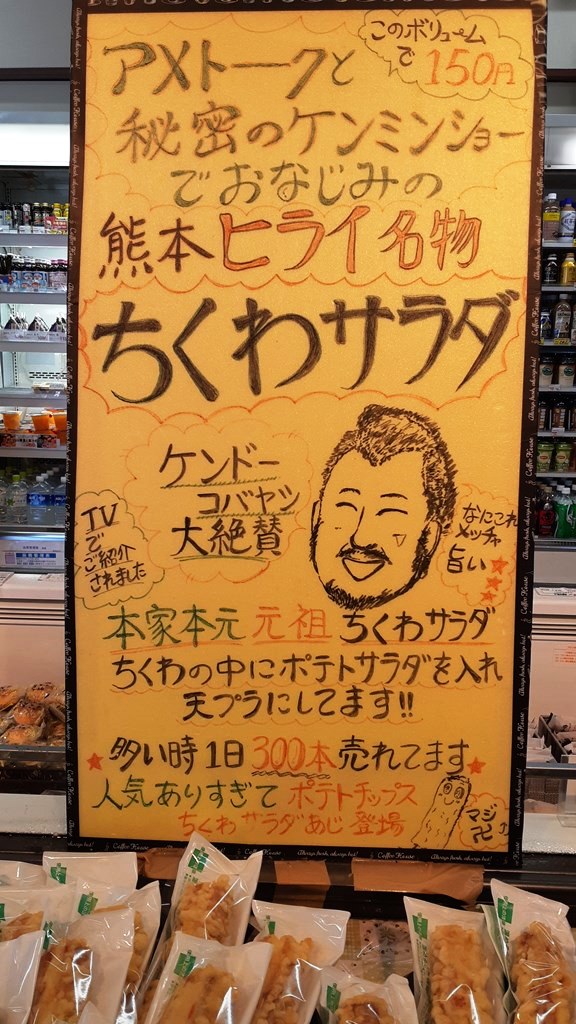 このボリューム
で 150円
アメトークと
秘密のケンミンショー
でおなじみの
熊本 ヒライ名物
ちくわサラダ
ケンドー
コバヤシ
大絶賛
TV
で
ご紹介
されました
なにこれ
メッチャ
旨い
本家本元 元祖 ちくわサラダ
ちくわの中にポテトサラダを入れ
天プラにしてます!!
★多い時1日300本売れてます★
人気ありすぎて ポテトチップス
ちくわサラダあじ 登場
マジ
卍